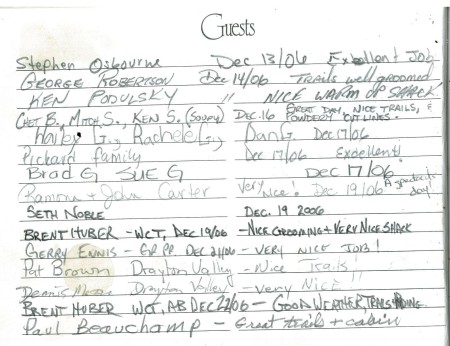 Guests
Stephen Osbourne Dec 13/06 Excellent Job
GEORGE ROBERTSON Dec 14/06 TRAILS well groomed
KEN PODULSKY " NICE WARM UP SHACK
CHET B., MITCH S., KEN S. (SOUPY) DEC. 16 GREAT DAY, NICE TRAILS, & POWDERY CUT LINES.
Harley G., Rachele G., Dan G. Dec 17/06
Pichard family Dec 17/06 Excellent!
Brad G SUE G Dec 17/06
Ramona & John Carter Very Nice! Dec 19/06 A great day!
SETH NOBLE DEC. 19 2006
BRENT HUBER - WCT, DEC 19/06 - NICE GROOMING + VERY NICE SHACK
GERRY ENNIS - GR. PR. DEC 21/06 - VERY NICE JOB!
Pat Brown Drayton Valley - Nice Trails!
Dennis Drayton Valley - Very Nice!!
BRENT HUBER WCT, AB DEC 22/06 - GOOD WEATHER, TRAILS
Paul Beauchamp - Great trails + cabin